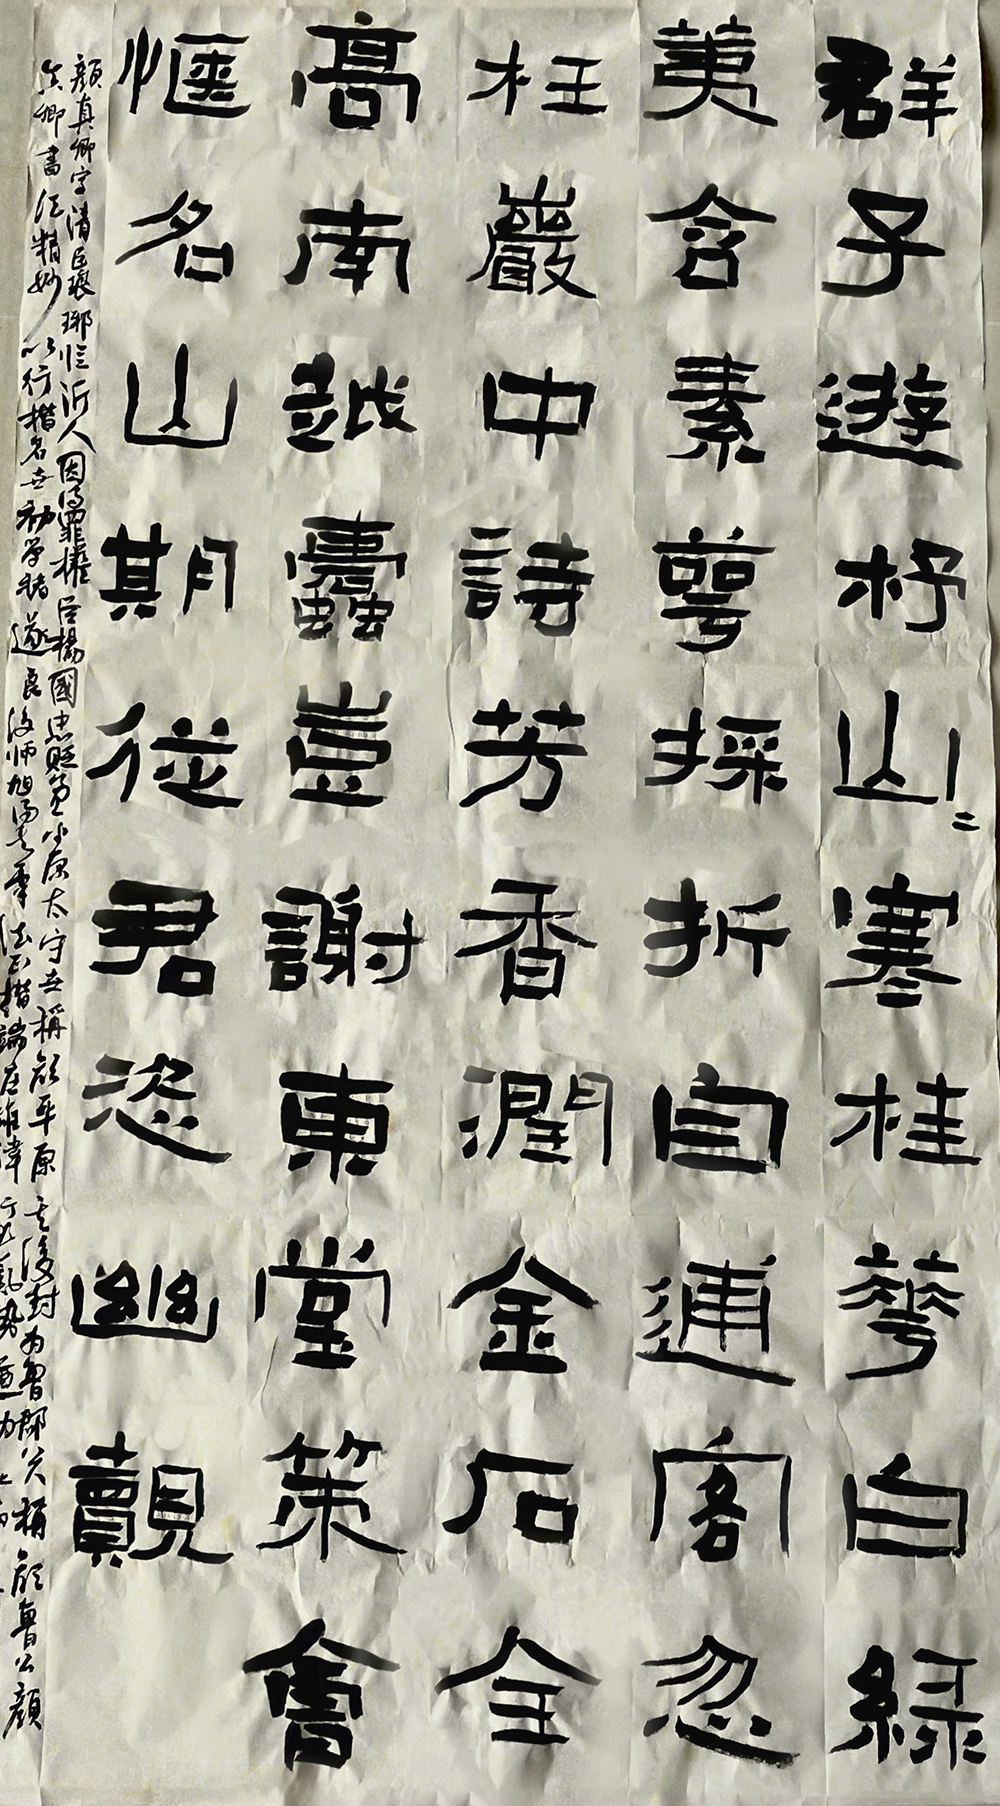 群子遊杼山=寒桂華白綠
荑含素萼採折自逋客忽
枉巖中詩芳香潤金石全
高南越蠹豈謝東堂策會
愜名山期從君恣幽覿
顏真卿字清臣琅琊臨沂人因得罪權臣楊國忠貶為平原太守世稱顏平原又後封為魯郡公人稱顏魯公顏
真卿書法精妙以行楷名世初學褚遂良後師張旭得其筆法正楷端莊雄偉行書氣勢遒勁